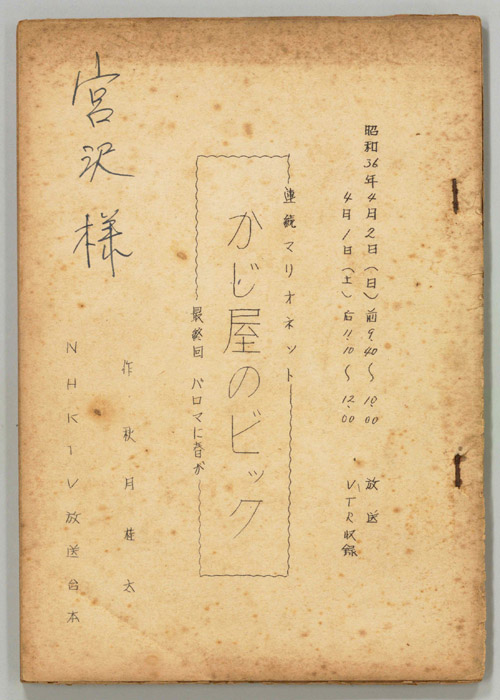 昭和36年4月2日(日)前9.40〜10.00 放送
4月1日(土)后11.10〜12.00 VTR収録
連続マリオネット
かじ屋のビック
最終回 パロマに春が
作 秋月桂太
NHKTV放送台本
宮沢様